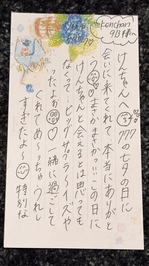 kenchan
けんちゃんへ 777の七夕の日に
会いに来てくれて本当にありがと
う まさかまさかっ…この日に
けんちゃんと会えるとは思っても
なくって…ビックサプラ〜イズや
ったよぉ 一緒に過ごして
くれてめ〜っちゃうれし
すぎたよ〜 特別な